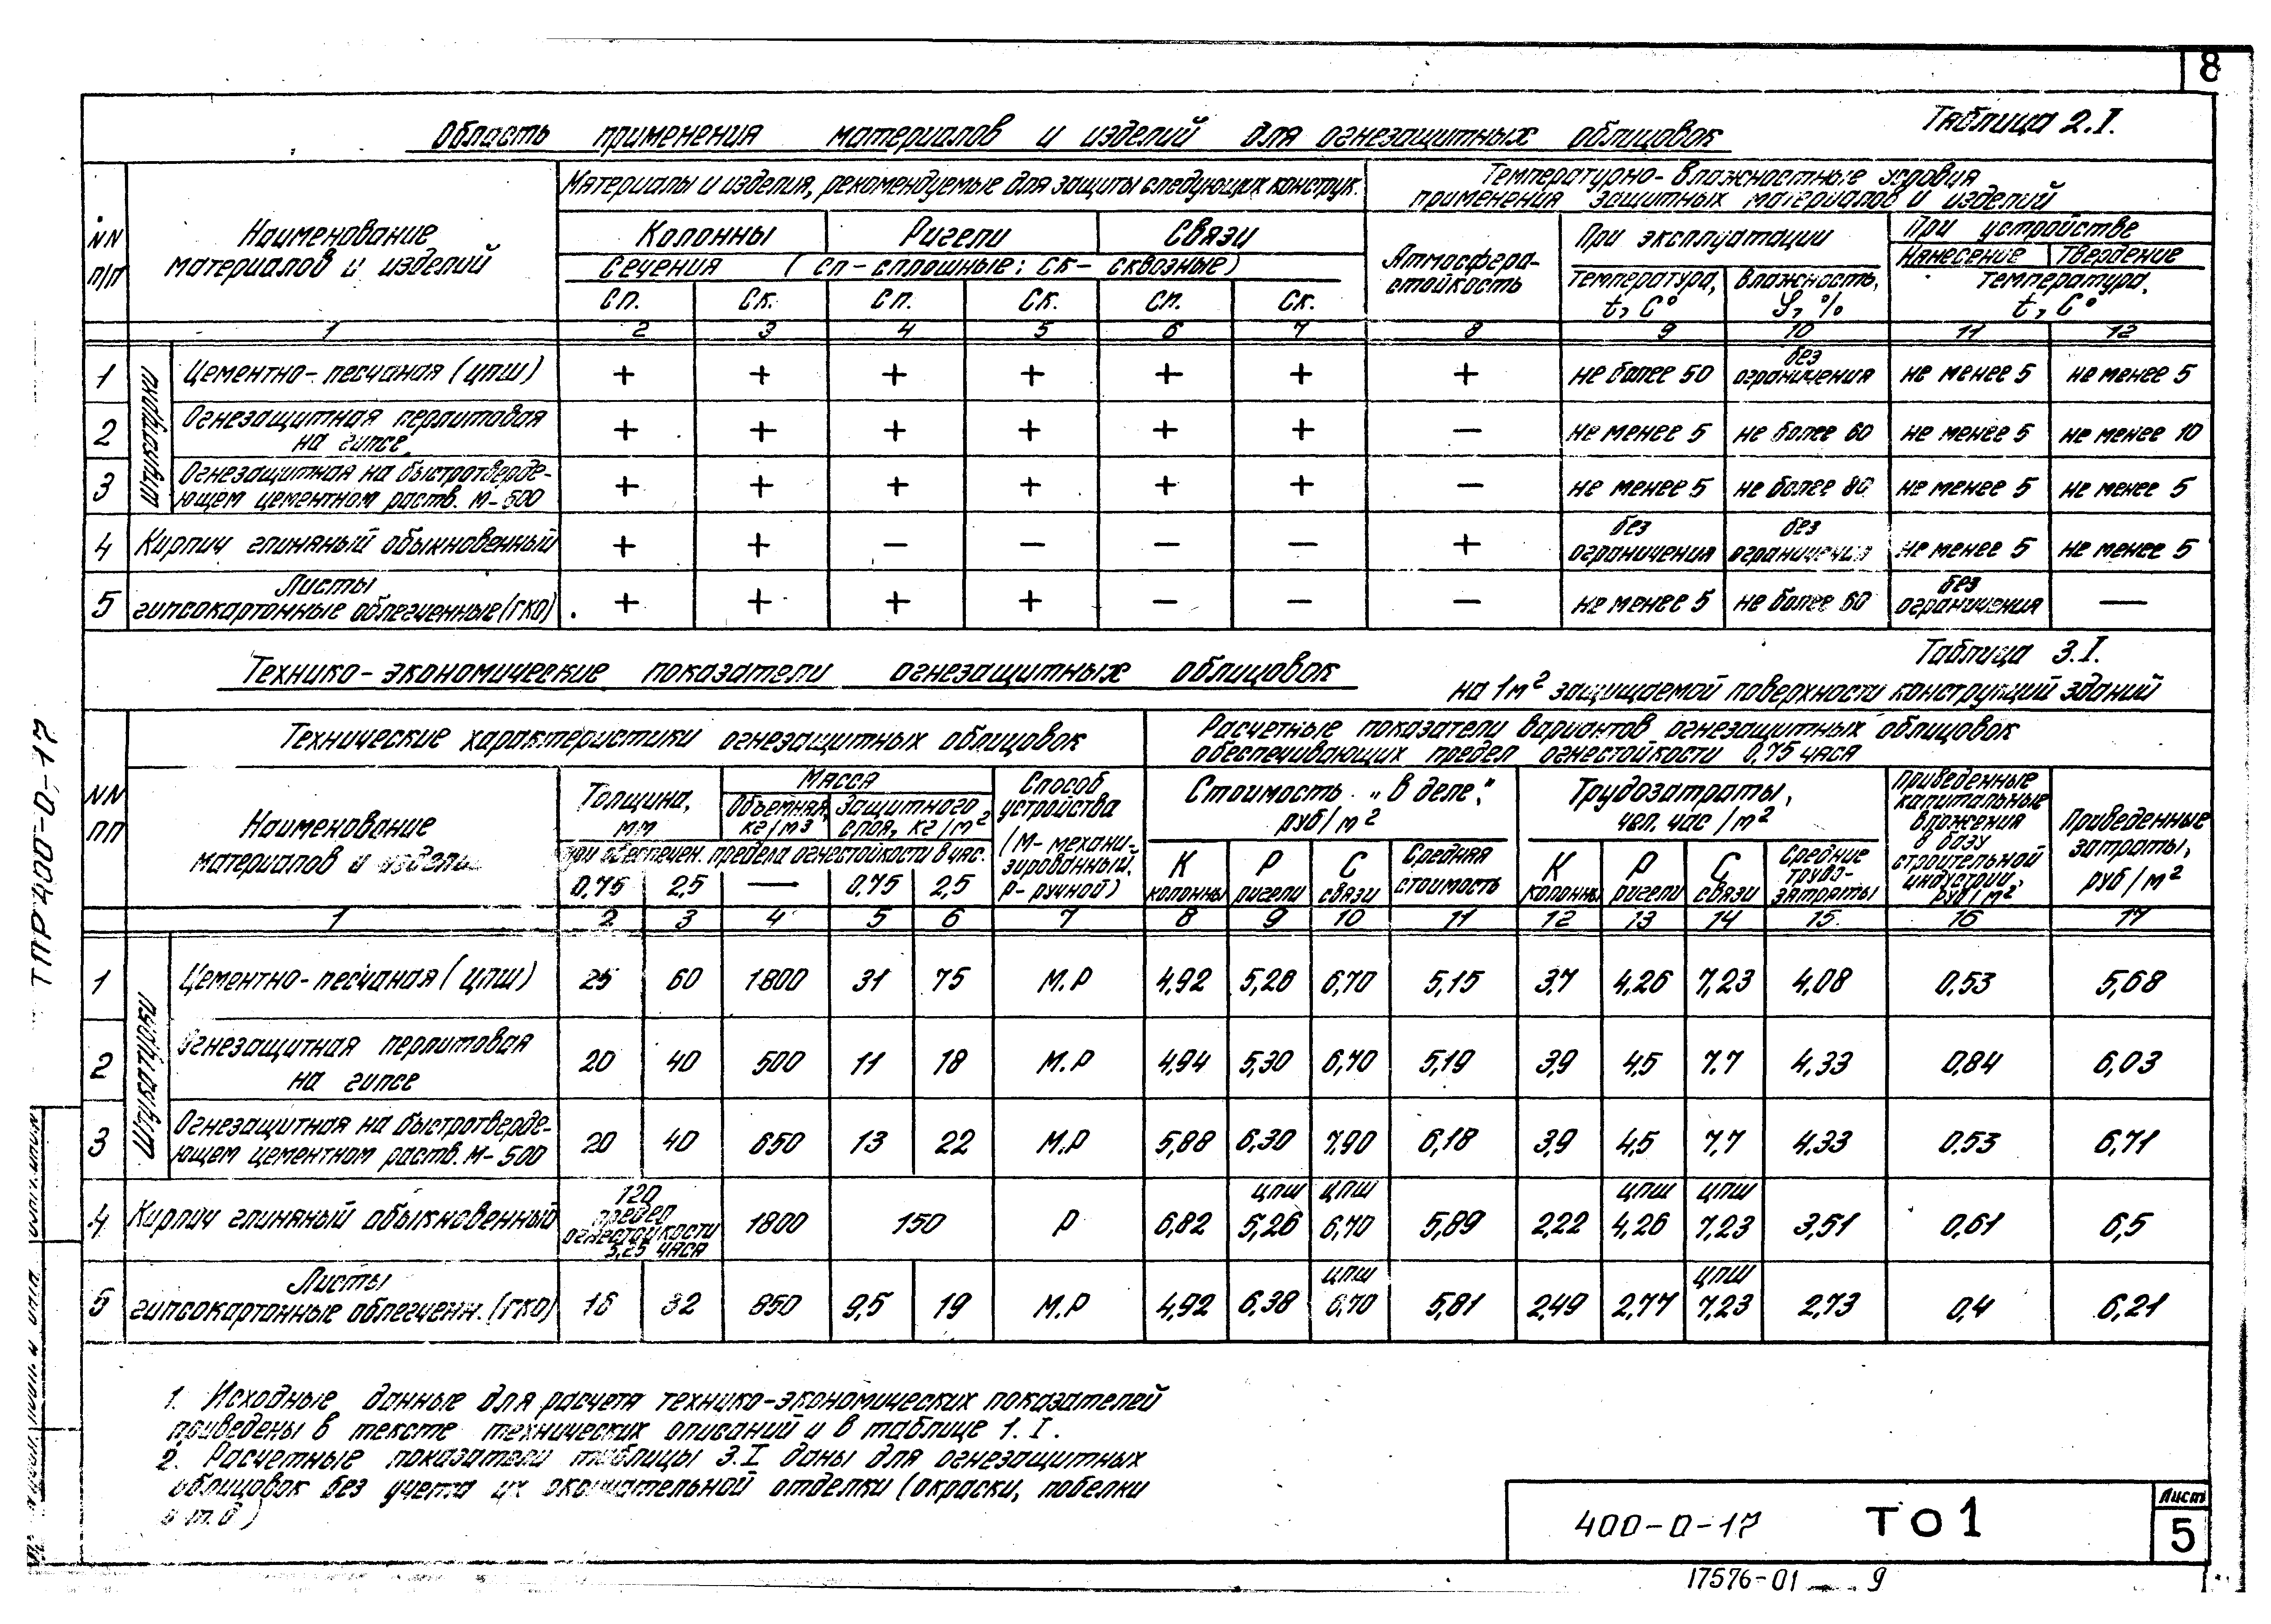 8
Таблица 2.I.
Область применения материалов и изделий для огнезащитных облицовок
NN п/п
Наименование материалов и изделий
Материалы и изделия, рекомендуемые для защиты следующих конструк.
Температурно-влажностные условия
применения защитных материалов и изделий
Колонны Ригели Связи
Сечения (сп-сплошные; ск-сквозные)
Сп. Ск. Сп. Ск. Сп. Ск.
Атмосферо-
стойкость
При эксплуатации
Температура, t, C° Влажность, φ, %
При устройстве
Нанесение Твердение
Температура, t, C°
1 2 3 4 5 6 7 8 9 10 11 12
Штукатурки
1 Цементно-песчаная (ЦПШ) + + + + + + + не более 50 без ограничения не менее 5 не менее 5
2 Огнезащитная перлитовая на гипсе + + + + + + − не менее 5 не более 60 не менее 5 не менее 10
3 Огнезащитная на быстротверде-ющем цементном раств. М-500 + + + + + + − не менее 5 не более 80 не менее 5 не менее 5
4 Кирпич глиняный обыкновенный + + − − − − + без ограничения без ограничения не менее 5 не менее 5
5 Листы гипсокартонные облегченные (ГКО) + + + + − − − не менее 5 не более 60 без ограничения —
Таблица 3.I.
Технико-экономические показатели огнезащитных облицовок
на 1м² защищаемой поверхности конструкций зданий
NN пп
Технические характеристики огнезащитных облицовок
Расчетные показатели вариантов огнезащитных облицовок
обеспечивающих предел огнестойкости 0,75 часа
Наименование материалов и изделий
Толщина, мм
Масса
Объемная, кг/м3 Защитного слоя, кг/м²
при обеспечен. предела огнестойкости в час.
0,75 2,5 — 0,75 2,5
Способ устройства (М-механи-зированный, Р-ручной)
Стоимость "в деле", руб/м²
К колонны Р ригели С связи Средняя стоимость
Трудозатраты, чел. час/м²
К колонны Р ригели С связи Средние трудо-затраты
Приведенные капитальные вложения в базу строительной индустрии, руб/м²
Приведенные затраты, руб/м²
1 2 3 4 5 6 7 8 9 10 11 12 13 14 15 16 17
Штукатурки
1 Цементно-песчаная (ЦПШ) 25 60 1800 31 75 М.Р 4,92 5,26 6,70 5,15 3,7 4,26 7,23 4,08 0,53 5,68
2 Огнезащитная перлитовая на гипсе 20 40 500 11 18 М.Р 4,94 5,30 6,70 5,19 3,9 4,5 7.7 4,33 0,84 6,03
3 Огнезащитная на быстротверде-ющем цементном раств. М-500 20 40 650 13 22 М.Р 5,88 6,30 7,90 6,18 3,9 4,5 7,7 4,33 0,53 6,71
4 Кирпич глиняный обыкновенный 120 предел огнестойкости 5,25 часа 1800 150 Р 6,82 ЦПШ 5,26 ЦПШ 6,70 5,89 2,22 ЦПШ 4,26 ЦПШ 7,23 3,51 0,61 6,5
5 Листы гипсокартонные облегченн. (ГКО) 16 32 850 9,5 19 М.Р 4,92 6,38 ЦПШ 6,70 5,81 2,49 2,77 ЦПШ 7,23 2,73 0,4 6,21
1. Исходные данные для расчета технико-экономических показателей
приведены в тексте технических описаний и в таблице 1.I.
2. Расчетные показатели таблицы 3.I даны для огнезащитных
облицовок без учета их окончательной отделки (окраски, побелки
и т.д)
ТПР 400-0-17
400-0-17 ТО1
Лист
5
17576-01 9